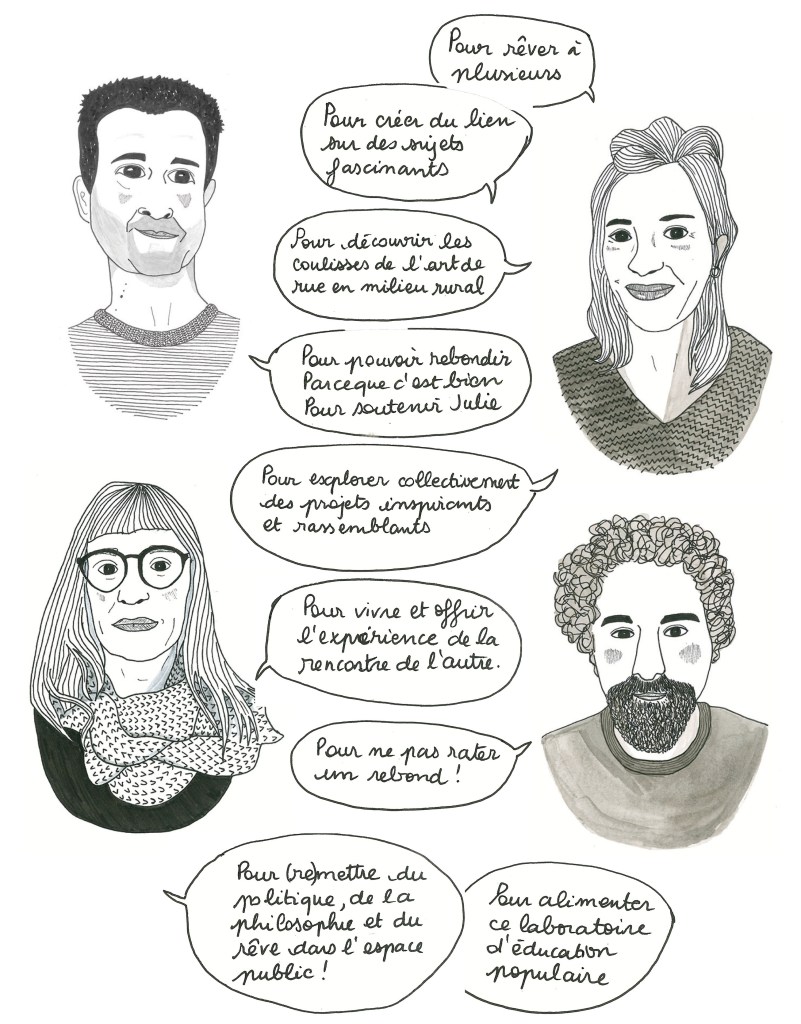 Pour rêver à
plusieurs
Pour créer du lien
sur des sujets
fascinants
Pour découvrir les
coulisses de l'art de
rue en milieu rural
Pour pouvoir rebondir
Parceque c'est bien
Pour soutenir Julie
Pour explorer collectivement
des projets inspirants
et rassemblants
Pour vivre et offrir
l'expérience de la
rencontre de l'autre.
Pour ne pas rater
un rebond !
Pour (re)mettre du
politique, de la
philosophie et du
rêve dans l'espace
public !
Pour alimenter
ce laboratoire
d'éducation
populaire